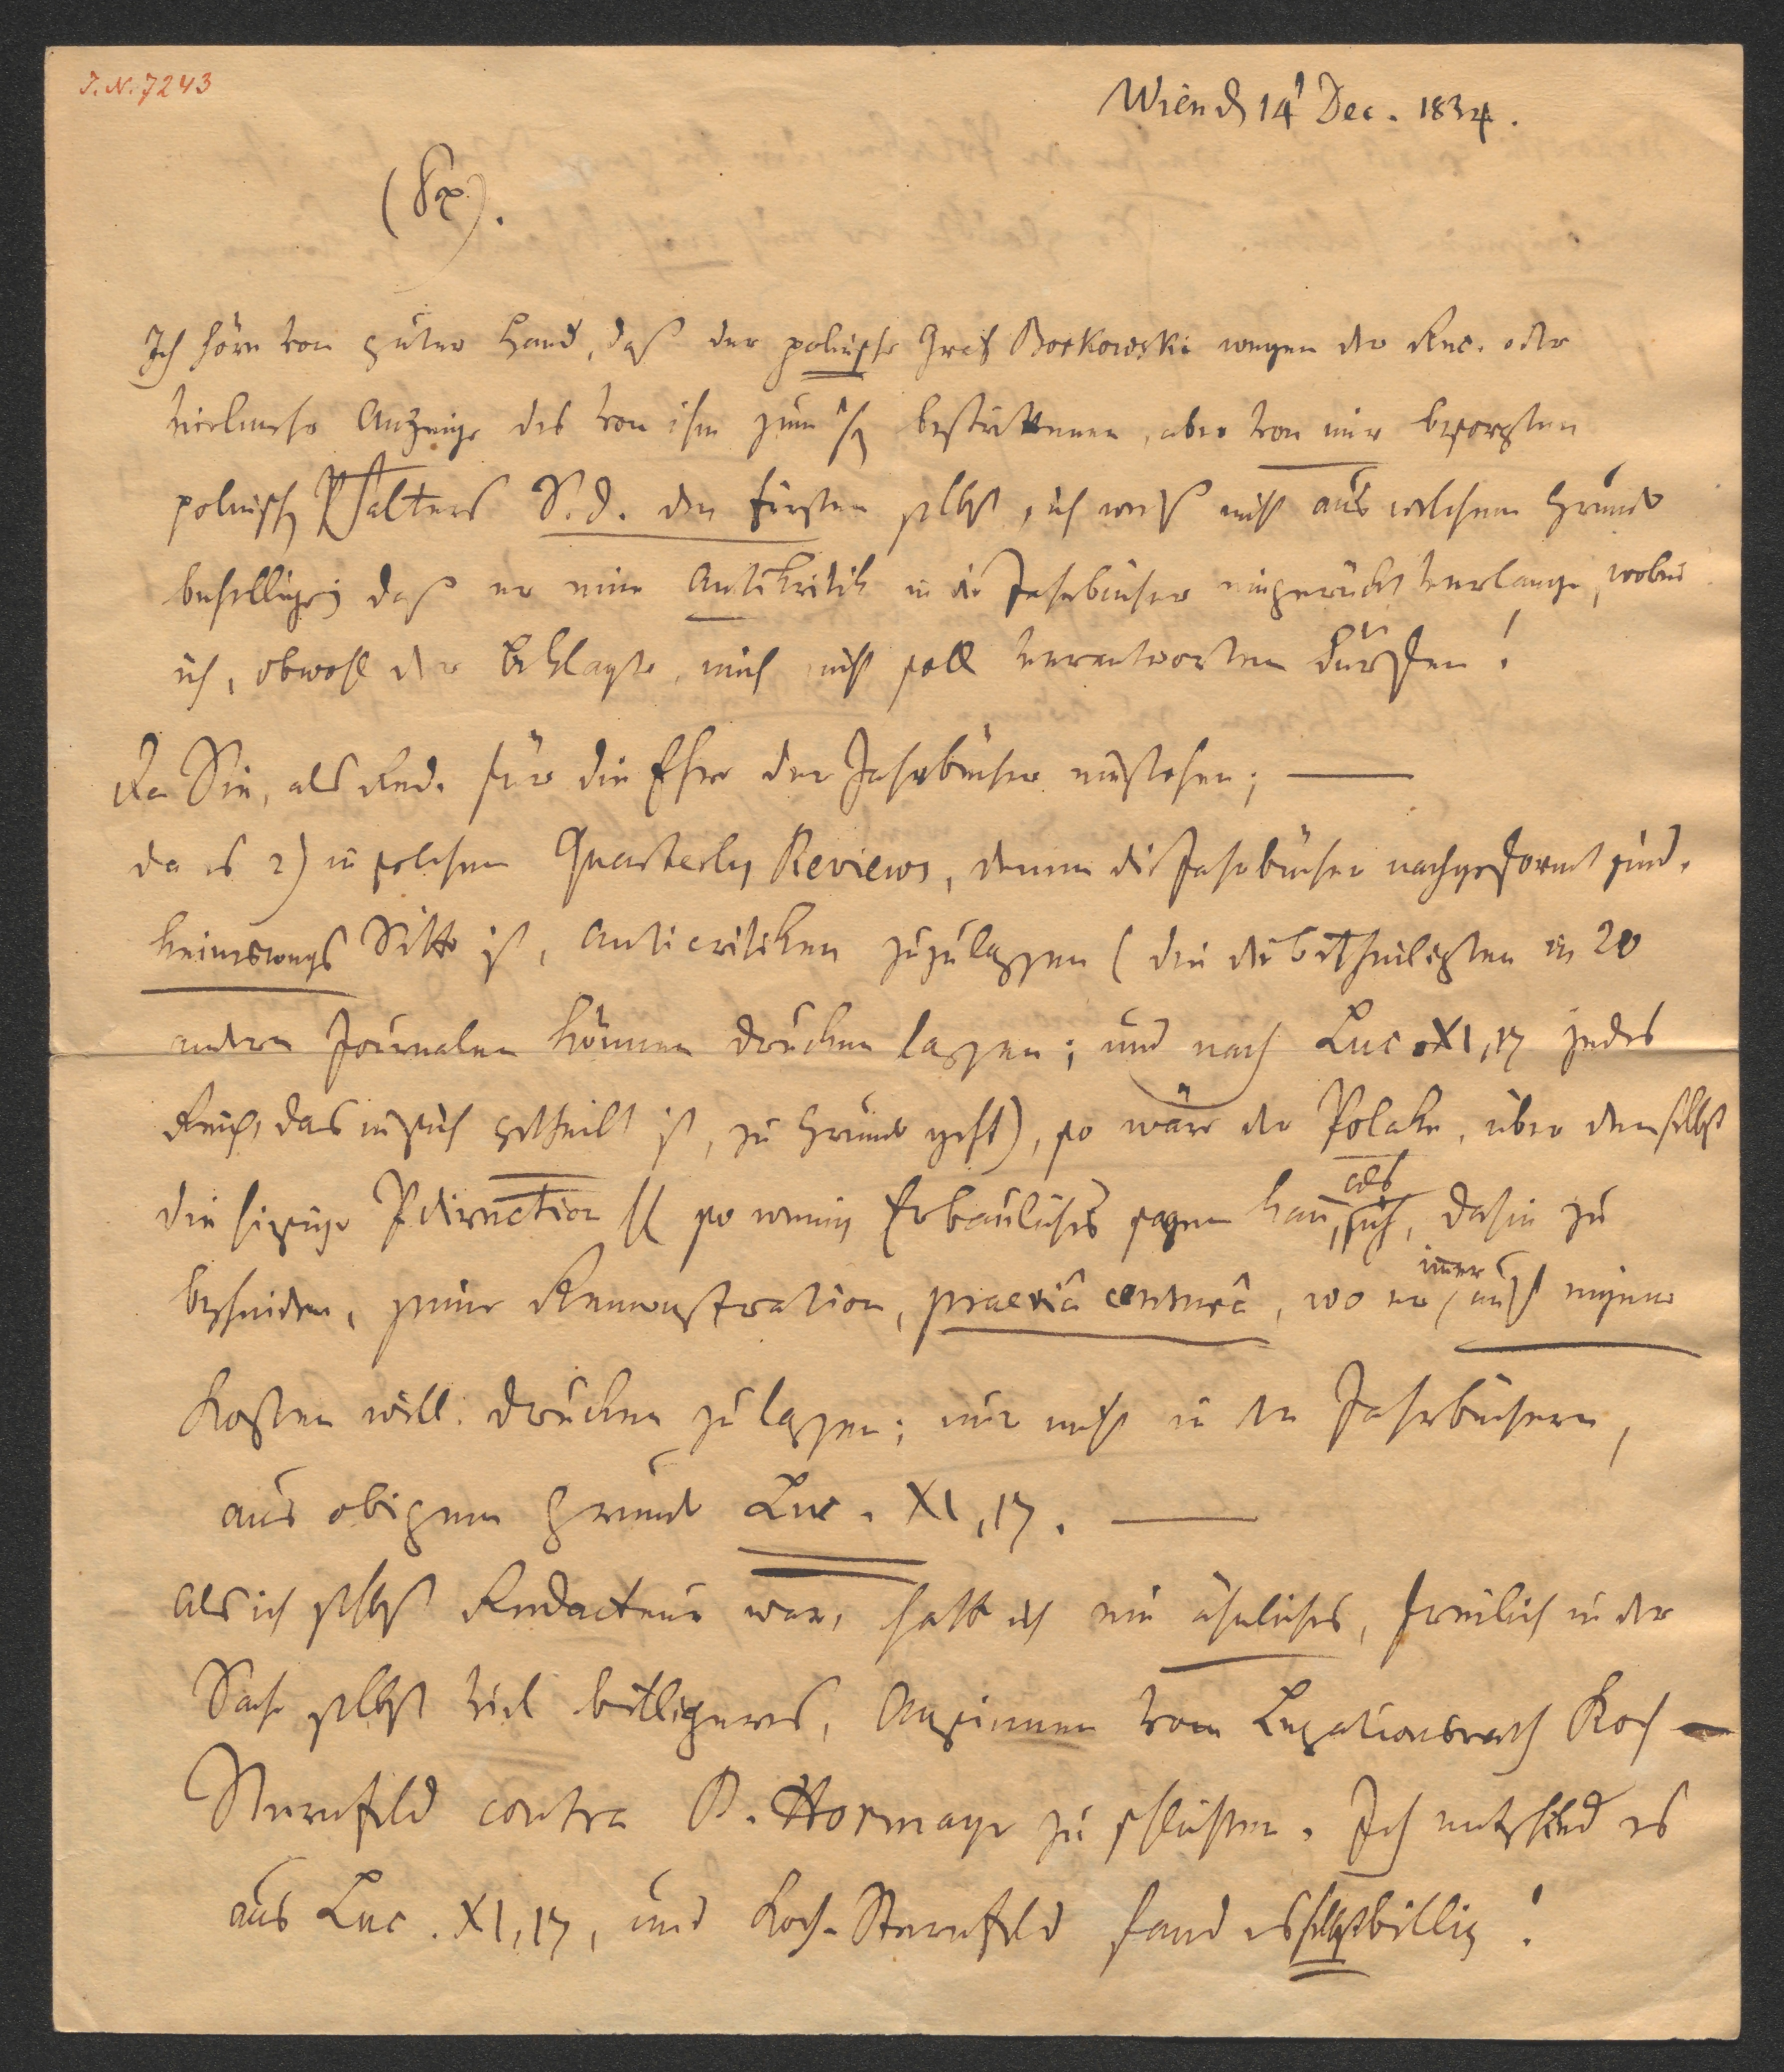 J. N. 7243
Wien d 14t Dec. 1834.
Ich höre von guter Hand, daß der polnische Graf Borkowski wegen der Rec. oder
vielmehr Anzeige des von ihm zum bestrittenen, aber von mir besorgten
polnisch Psalters S. D. den Fürsten selbst, ich weiß nicht aus welchem Grunde
behelligt; daß er eine Antikritik in die Jahrbücher eingerückt verlange, wobei
ich, obwohl der Beklagte, mich nicht soll verantworten dürfen!
Da Sie, als Red. für die Ehre der Jahrbücher einstehen; —
da es 2) in solchen Quarterly Reviews, denen die Jahrbücher nachgeformt sind,
keineswegs Sitte ist, Anticritiken zuzulassen (die die betheiligten in 20
andern Journalen können drucken lassen; und nach Luc. XI, 17 jedes
Reich, das in sich getheilt ist, zu Grunde geht), so wäre der Polake, über den selbst
die hiesige Pdirection so wenig Erbauliches sagen kann, als sich, dahin zu
bescheiden, seine Remonstration, praeviâ censurâ, wo er immer auf eigene
Kosten will, drucken zu lassen; nur nicht in den Jahrbüchern,
aus obigem Grunde Luc. XI, 17. —
Als ich selbst Redacteur war, hatte ich ein ähnliches, freilich in der
Sache selbst viel billigeres, Ansinnen vom Legationsrath Koch-
Sternfeld contra B. Hormayr zu schlichten. Ich entschied es
aus Luc. XI, 17, und Koch-Sternfeld fand es selbst billig!